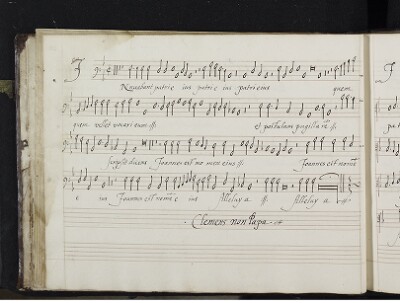 I
Innuebant patri e ius patri e ius patri eius quem
quem vellet vocari eum et postulans pugilla rē
scripsit dicens Joannes est no men eius Joannes est nomen
e ius Joannes est nomē e ius Alleluy a Alleluy a
Clemens non Papa